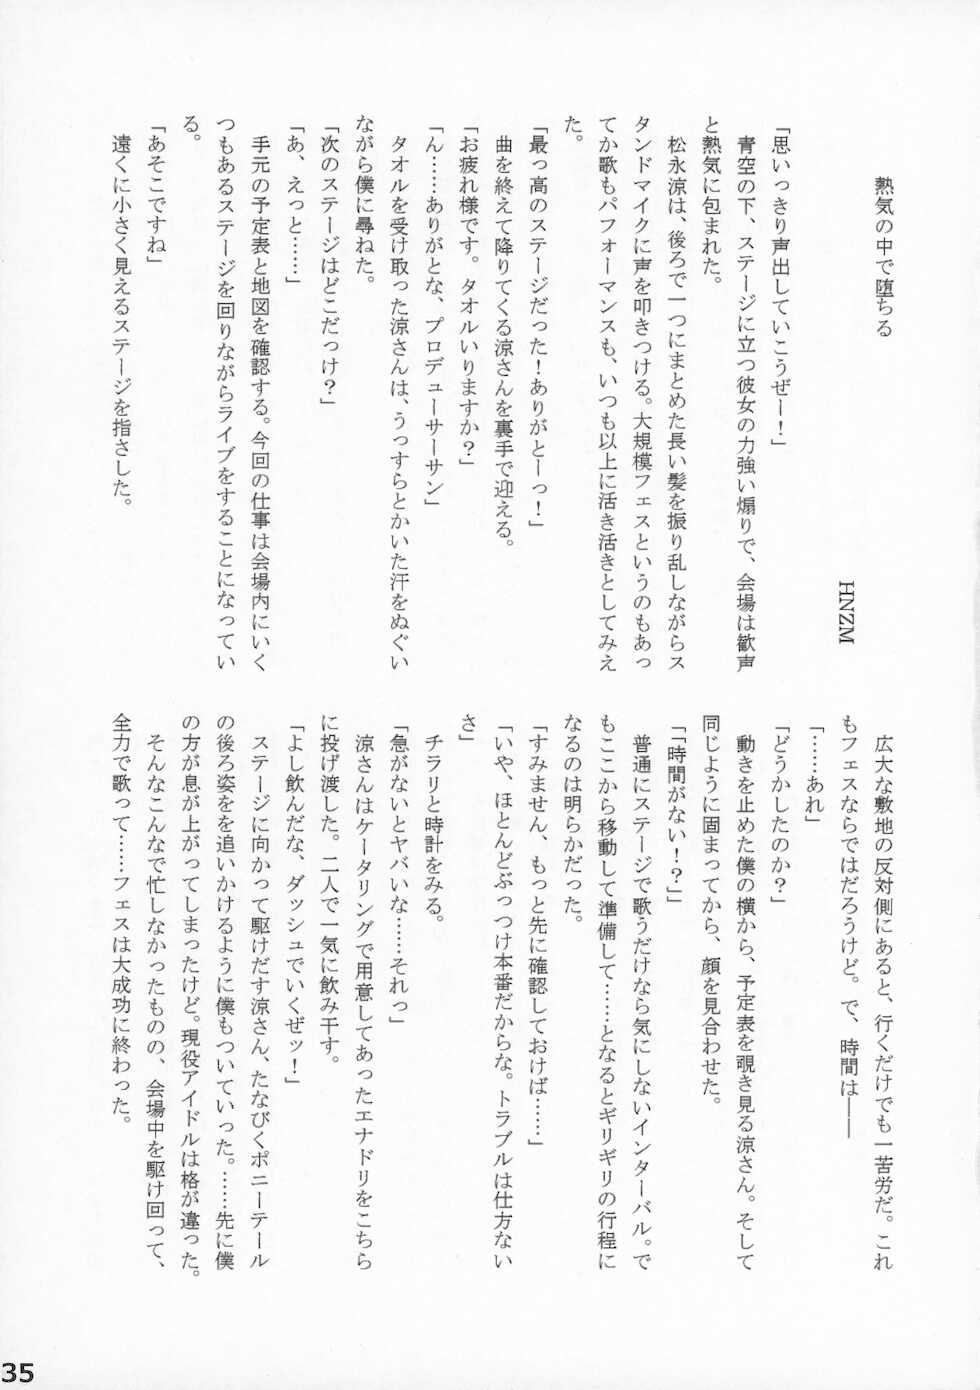 熱気の中で堕ちる
HNZM
「思いっきり声出していこうぜー！」
青空の下、ステージに立つ彼女の力強い煽りで、会場は歓声
と熱気に包まれた。
松永涼は、後ろで一つにまとめた長い髪を振り乱しながらス
タンドマイクに声を叩きつける。大規模フェスというのもあっ
てか歌もパフォーマンスも、いつも以上に活き活きとしてみえ
た。
「最っ高のステージだった！ありがとーっ！」
曲を終えて降りてくる涼さんを裏手で迎える。
「お疲れ様です。タオルいりますか？」
「ん……ありがとな、プロデューサーサン」
タオルを受け取った涼さんは、うっすらとかいた汗をぬぐい
ながら僕に尋ねた。
「次のステージはどこだっけ？」
「あ、えっと……」
手元の予定表と地図を確認する。今回の仕事は会場内にいく
つもあるステージを回りながらライブをすることになってい
る。
「あそこですね」
遠くに小さく見えるステージを指さした。
広大な敷地の反対側にあると、行くだけでも一苦労だ。これ
もフェスならではだろうけど。で、時間は――
「……あれ」
「どうかしたのか？」
動きを止めた僕の横から、予定表を覗き見る涼さん。そして
同じように固まってから、顔を見合わせた。
「「時間がない！？」
普通にステージで歌うだけなら気にしないインターバル。で
もここから移動して準備して……となるとギリギリの行程に
なるのは明らかだった。
「すみません、もっと先に確認しておけば……」
「いや、ほとんどぶっつけ本番だからな。トラブルは仕方ない
さ」
チラリと時計をみる。
「急がないとヤバいな……それっ」
涼さんはケータリングで用意してあったエナドリをこちら
に投げ渡した。二人で一気に飲み干す。
「よし飲んだな、ダッシュでいくぜッ！」
ステージに向かって駆けだす涼さん、たなびくポニーテール
の後ろ姿をを追いかけるように僕もついていった。……先に僕
の方が息が上がってしまったけど。現役アイドルは格が違った。
そんなこんなで忙しなかったものの、会場中を駆け回って、
全力で歌って……フェスは大成功に終わった。
35